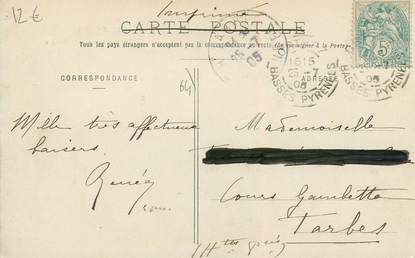 12 €
Imprimé
CARTE POSTALE
Tous les pays étrangers n'acceptent pas la correspondance au recto. (Se renseigner à la Poste)
CORRESPONDANCE
ADRESSE
64
Mille très affectueux
baisers.
Renée
Mademoiselle
Cours Gambetta
Tarbes
Htes
1615
25 -7
05
BASSES PYRENEES
BASSES PYRENEES
05
5